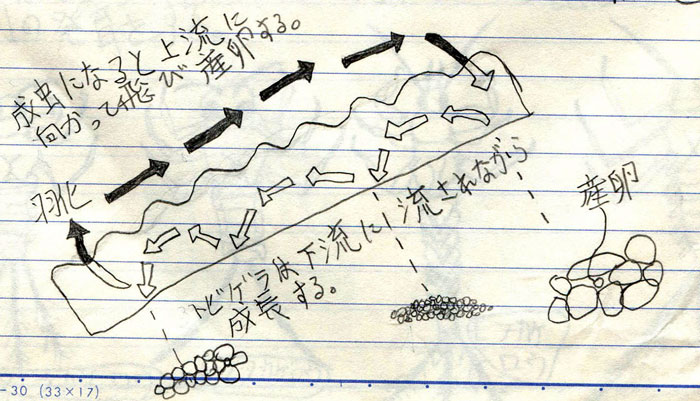 成虫になると上流に
向かって飛び産卵する。
羽化
産卵
トビゲラは下流に流されながら
成長する。
-30 (33×17)